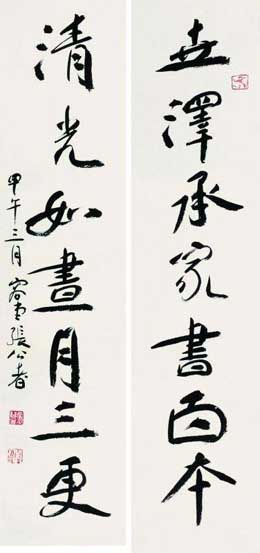 世澤承家書百本
清光如晝月三更
甲午三月 容堂張公者